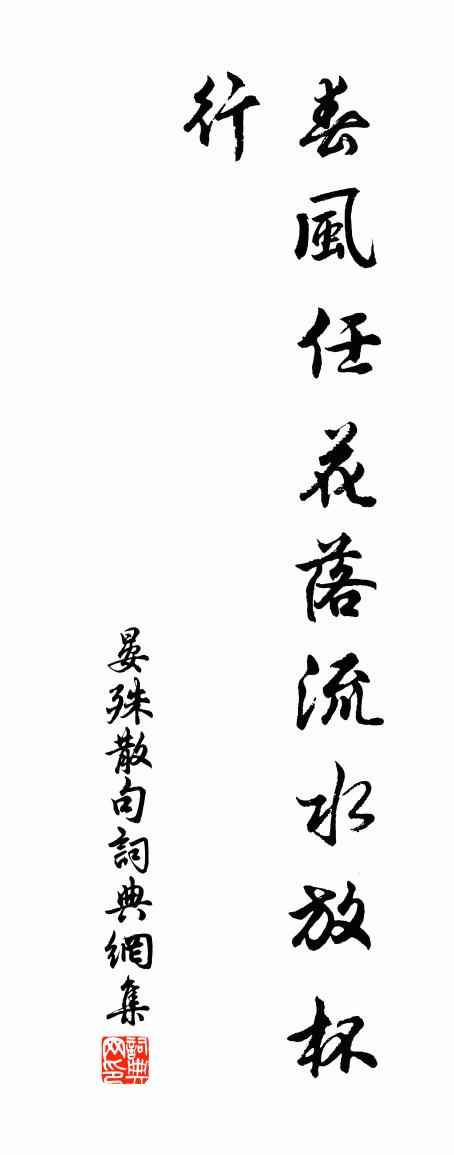 春風任花落流水放杯
行
晏殊散句詞典網集
詞典
网印